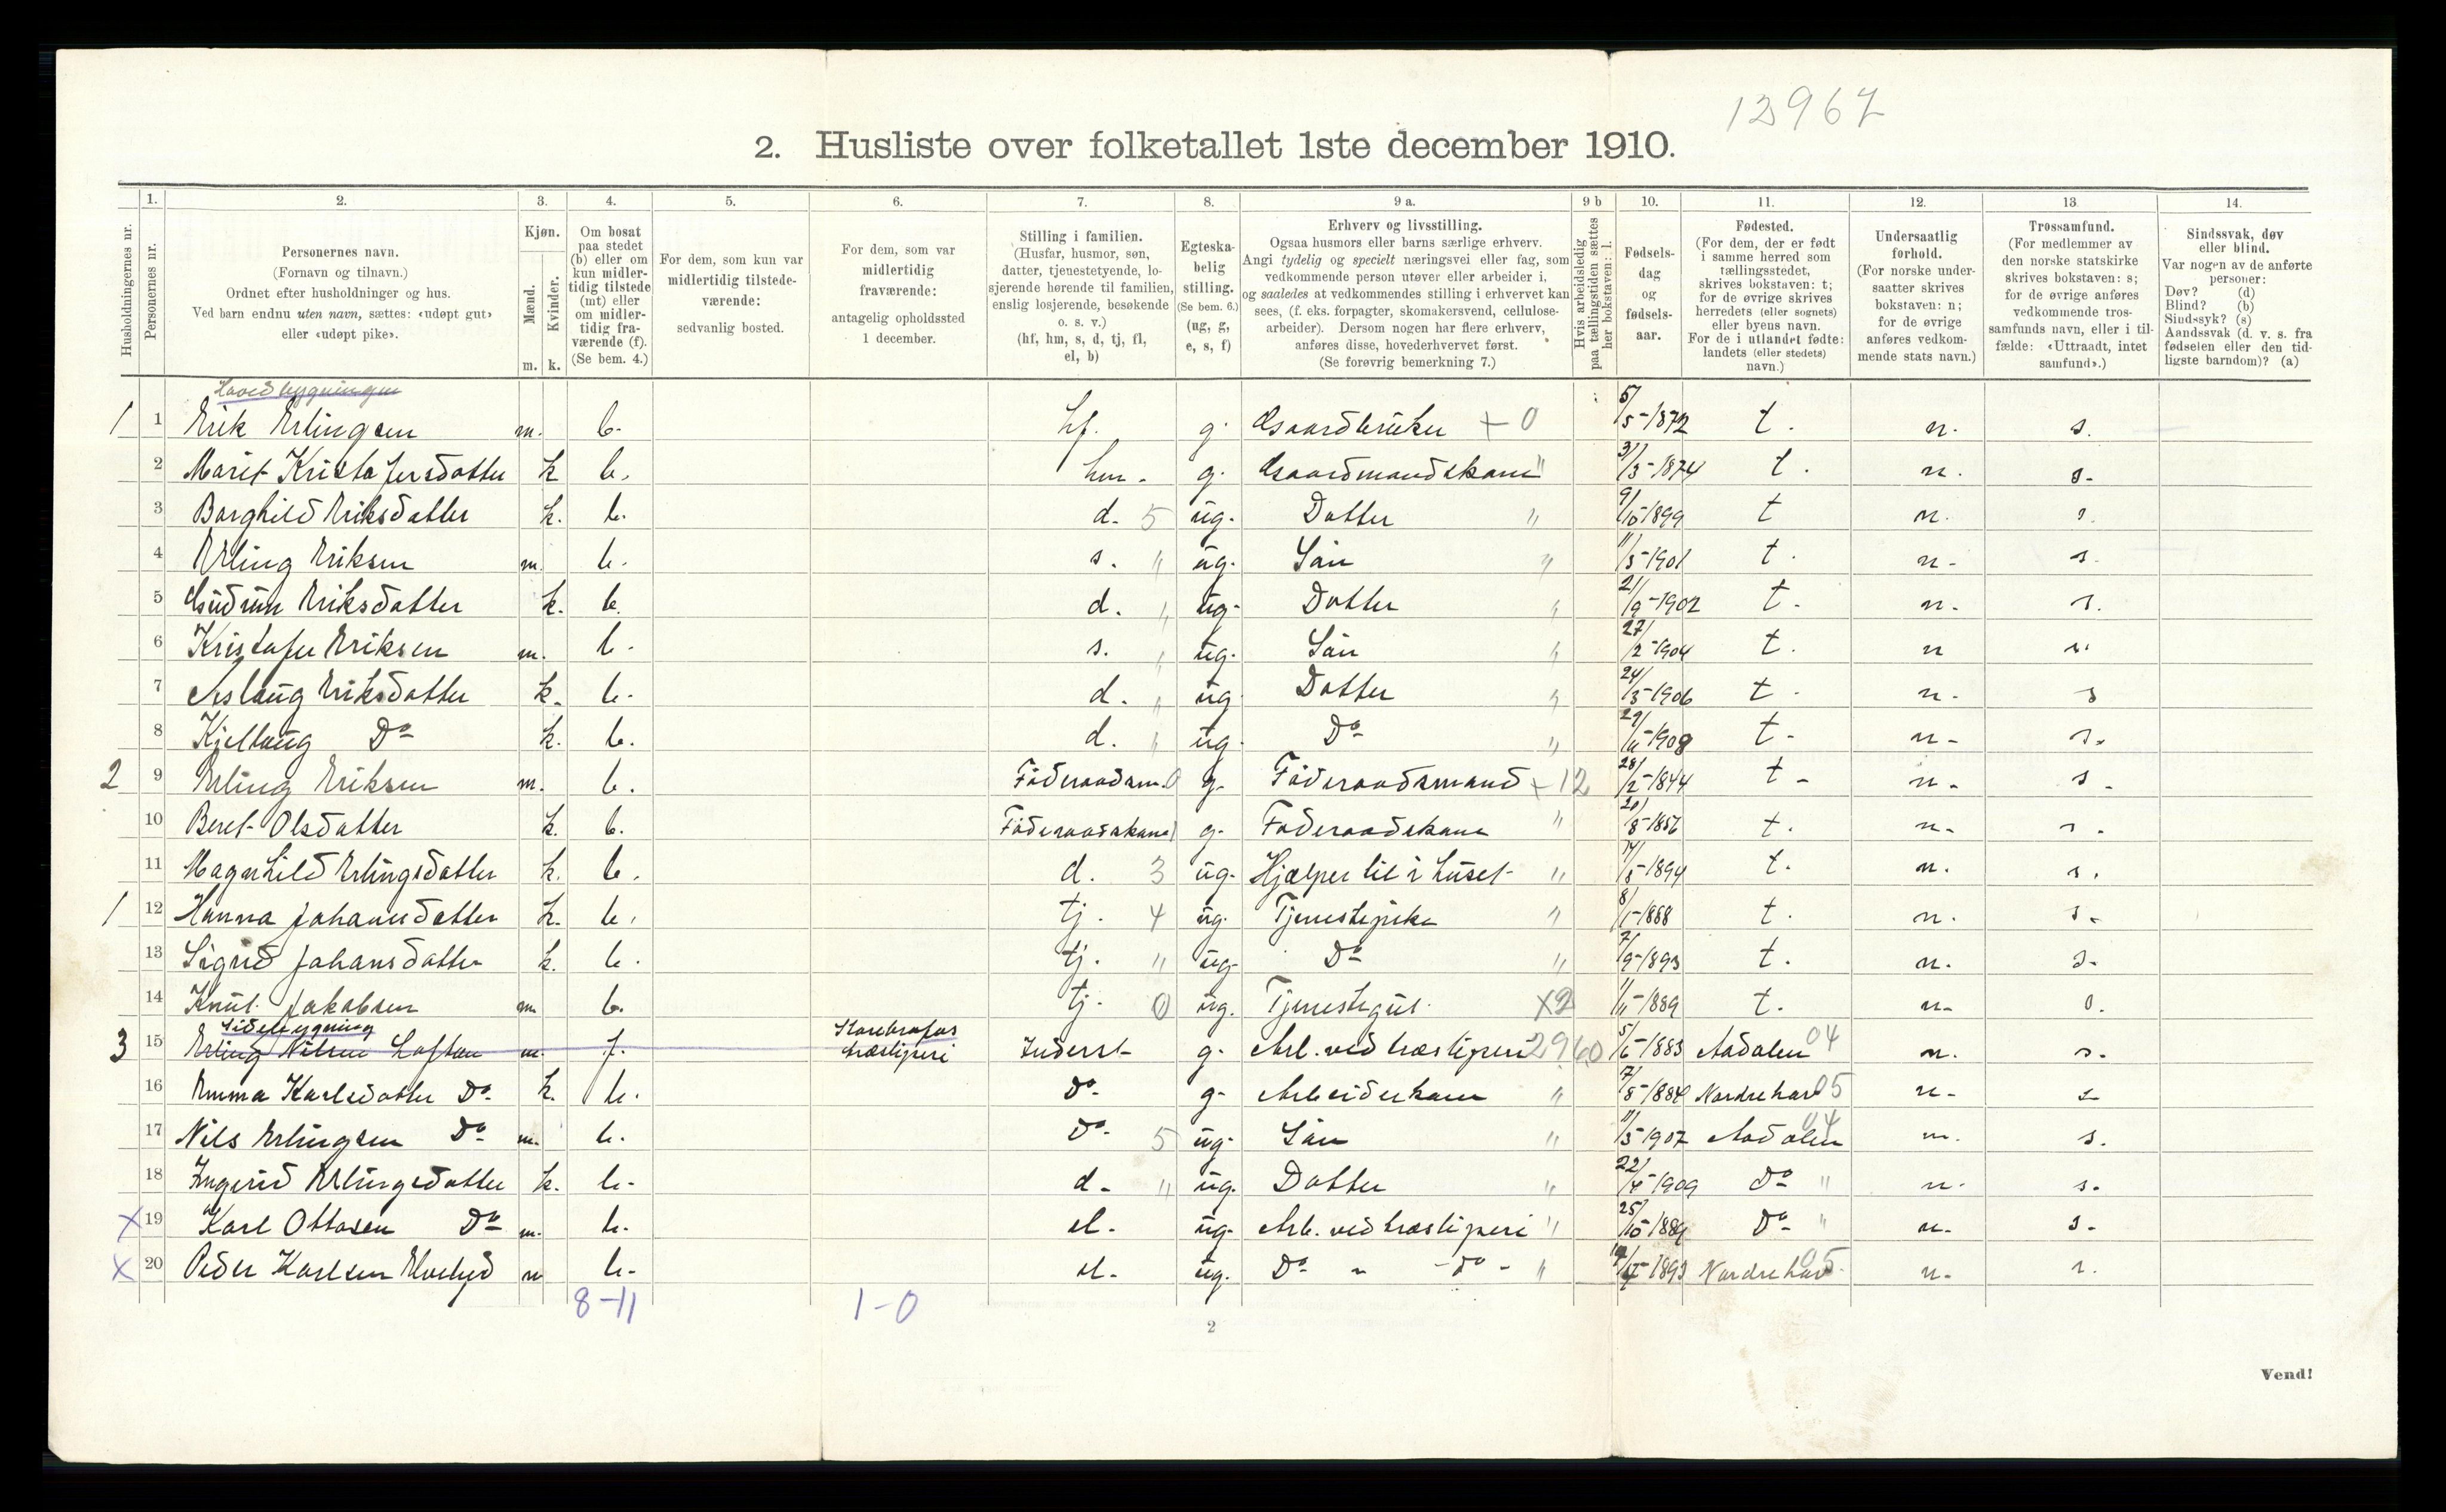 12967
2. Husliste over folketallet 1ste december 1910.
Husholdningernes nr.
1. Personernes nr.
2. Personernes navn.
(Fornavn og tilnavn.)
Ordnet efter husholdninger og hus.
Ved barn endnu uten navn, sættes: «udøpt gut»
eller «udøpt pike».
3. Kjøn.
Mænd. m.
Kvinder. k.
4. Om bosat
paa stedet
(b) eller om
kun midler-
tidig tilstede
(mt) eller
om midler-
tidig fra-
værende (f).
(Se bem. 4.)
5. For dem, som kun var
midlertidig tilstede-
værende:
sedvanlig bosted.
6. For dem, som var
midlertidig
fraværende:
antagelig opholdssted
1 december.
7. Stilling i familien.
(Husfar, husmor, søn,
datter, tjenestetyende, lo-
sjerende hørende til familien,
enslig losjerende, besøkende
o. s. v.)
(hf, hm, s, d, tj, fl,
el, b)
8. Egteska-
belig
stilling.
(Se bem. 6.)
(ug, g,
e, s, f)
9 a. Erhverv og livsstilling.
Ogsaa husmors eller barns særlige erhverv.
Angi tydelig og specielt næringsvei eller fag, som
vedkommende person utøver eller arbeider i,
og saaledes at vedkommendes stilling i erhvervet kan
sees, (f. eks. forpagter, skomakersvend, cellulose-
arbeider). Dersom nogen har flere erhverv,
anføres disse, hovederhvervet først.
(Se forøvrig bemerkning 7.)
9 b Hvis arbeidsledig
paa tællingstiden sættes
her bokstaven: l.
10. Fødsels-
dag
og
fødsels-
aar.
11. Fødested.
(For dem, der er født
i samme herred som
tællingsstedet,
skrives bokstaven: t;
for de øvrige skrives
herredets (eller sognets)
eller byens navn.
For de i utlandet fødte:
landets (eller stedets)
navn.)
12. Undersaatlig
forhold.
(For norske under-
saatter skrives
bokstaven: n;
for de øvrige
anføres vedkom-
mende stats navn.)
13. Trossamfund.
(For medlemmer av
den norske statskirke
skrives bokstaven: s;
for de øvrige anføres
vedkommende tros-
samfunds navn, eller i til-
fælde: «Uttraadt, intet
samfund».)
14. Sindssvak, døv
eller blind.
Var nogen av de anførte
personer:
Døv? (d)
Blind? (b)
Sindssyk? (s)
Aandssvak (d. v. s. fra
fødselen eller den tid-
ligste barndom)? (a)
Hovedbygningen
1 1 Erik Erlingsen m. b. hf. g. Gaardbruker + 0 5/5-1872 t. n. s.
2 Marit Kristofersdatter k b. hm. g. Gaardmandskone " 31/3-1874 t. n. s.
3 Borghild Eriksdatter k. b. d. 5 ug. Datter " 9/10-1899 t n. s.
4 Erling Eriksen m. b. s. " ug. Sön " 11/5-1901 t. n. s.
5 Gudrun Eriksdatter k. b. d. " ug. Datter " 21/9-1902 t. n. s.
6 Kristofer Eriksen m. b. s. " ug. Sön " 27/2-1904 t. n s.
7 Aslaug Eriksdatter k. b. d. " ug. Datter " 24/3-1906 t. n. s
8 Kjellaug Do k. b. d. " ug. Do " 29/11-1908 t. n. s.
2 9 Erling Eriksen m. b. Föderaadsm. 0 g. Föderaadsmand + 12 28/2-1844 t. n. s.
10 Beret Olsdatter k. b. Föderaadskone g. Föderaadskone " 20/8-1856 t. n. s.
11 Magnhild Erlingsdatter k. b. d. 3 ug. Hjælper til i huset " 14/5-1894 t. n. s.
1 12 Hanna Johansdatter k. b. tj. 4 ug. Tjenestepike " 8/1-1888 t. n. s.
13 Sigrid Johansdatter k. b. tj. " ug. Do " 7/9-1893 t. n. s.
14 Knut Jakobsen m b. tj. 0 ug. Tjenestegut X2 1/11-1889 t. n. s.
Sidebygning
3 15 Erling Nilsen Loftan m. f. træsliperi Inderst g. Arb. ved træsliperi 2960 5/6-1883 Aadalen 04 n. s.
16 Emma Karlsdatter Do k. b. Do g. Arbeiderkone " 7/8-1884 Nordrehov 05 n. s
17 Nils Erlingsen Do m. b. Do 5 ug. Sön " 11/5-1907 Aadalen 04 n. s.
18 Ingerid Erlingsdatter k. b. d. " ug. Datter " 22/4-1909 Do " n. s.
X 19 Karl Ottosen Do m. b. el. ug. Arb. ved træsliperi " 25/10-1889 Do " n. s.
X 20 Peder Karlsen m b. el. ug. Do " do " 1893 Nordrehov 05 n. s.
8-11 1-0
2
Vend!